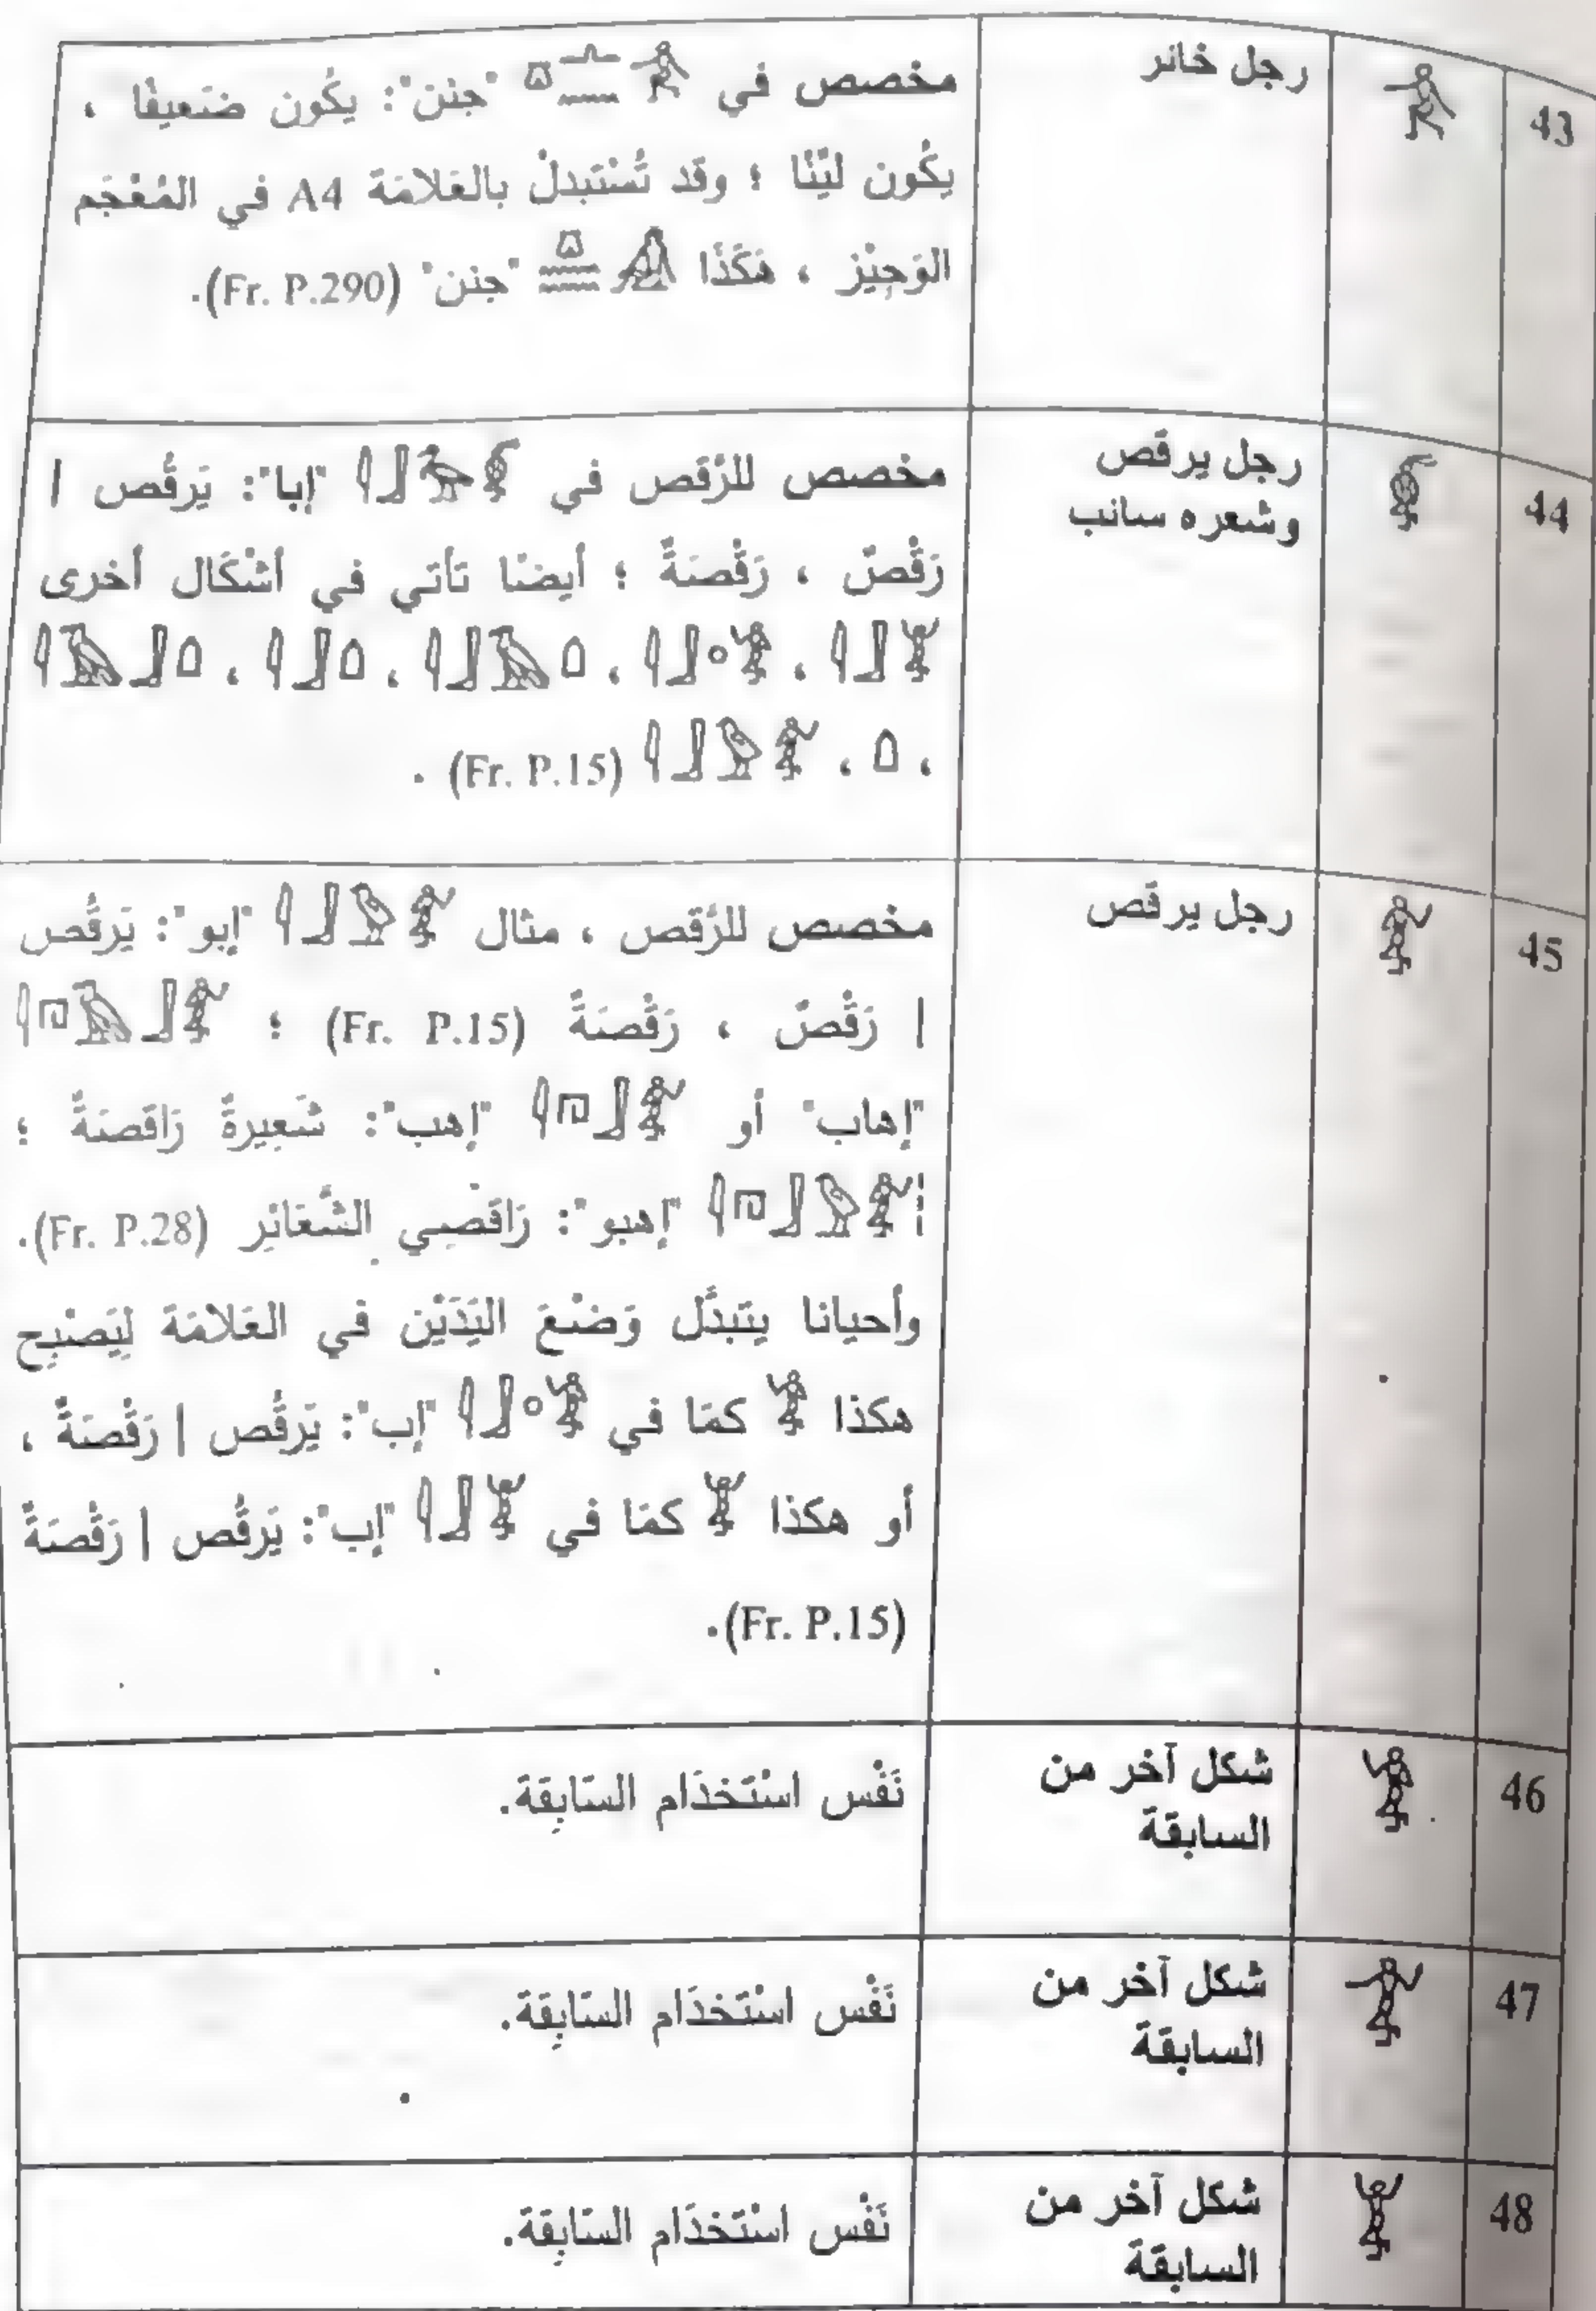 43
رجل خانر
مخصص في "جنن": يكُون ضَعيفًا ،
يكُون ليّنًا ؛ وقد تُسْتَبدلْ بالعَلامَة A4 في المُعْجَم
الوَجِيْز ، هَكَذَا "جنن" (Fr. P.290).
44
رجل يرقص
وشعره سانب
مخصص للرَّقص في "إبا": يَرقُص |
رَقْصٌ ، رَقْصَةٌ ؛ أيضنا تأتي في أشْكَال أخرى
، ، ، ،
، ، (Fr. P.15) .
45
رجل يرقص
مخصص للرَّقص ، مثال "إبو": يَرقُص
| رَقْصٌ ، رَقْصَةً (Fr. P.15) ؛
"إهاب" أو "إهب": شَعِيرةً رَاقصَةً ؛
"إهبو": رَاقصِي الشَّعَائِر (Fr. P.28).
وأحيانا يتبدَّل وَضْعَ اليَدَيْن في العَلامَة لِيَصْبِح
هكذا كمَا في "إب": يَرقُص | رَقْصَةً ،
أو هكذا كمَا في "إب": يَرقُص | رَقْصَةً
(Fr. P.15).
46
شكل آخر من
السابقة
نَفْس اسْتَخدَام السَابِقَة.
47
شكل آخر من
السابقة
نَفْس اسْتَخدَام السَابِقَة.
48
شكل آخر من
السابقة
نَفْس اسْتَخدَام السَابِقَة.